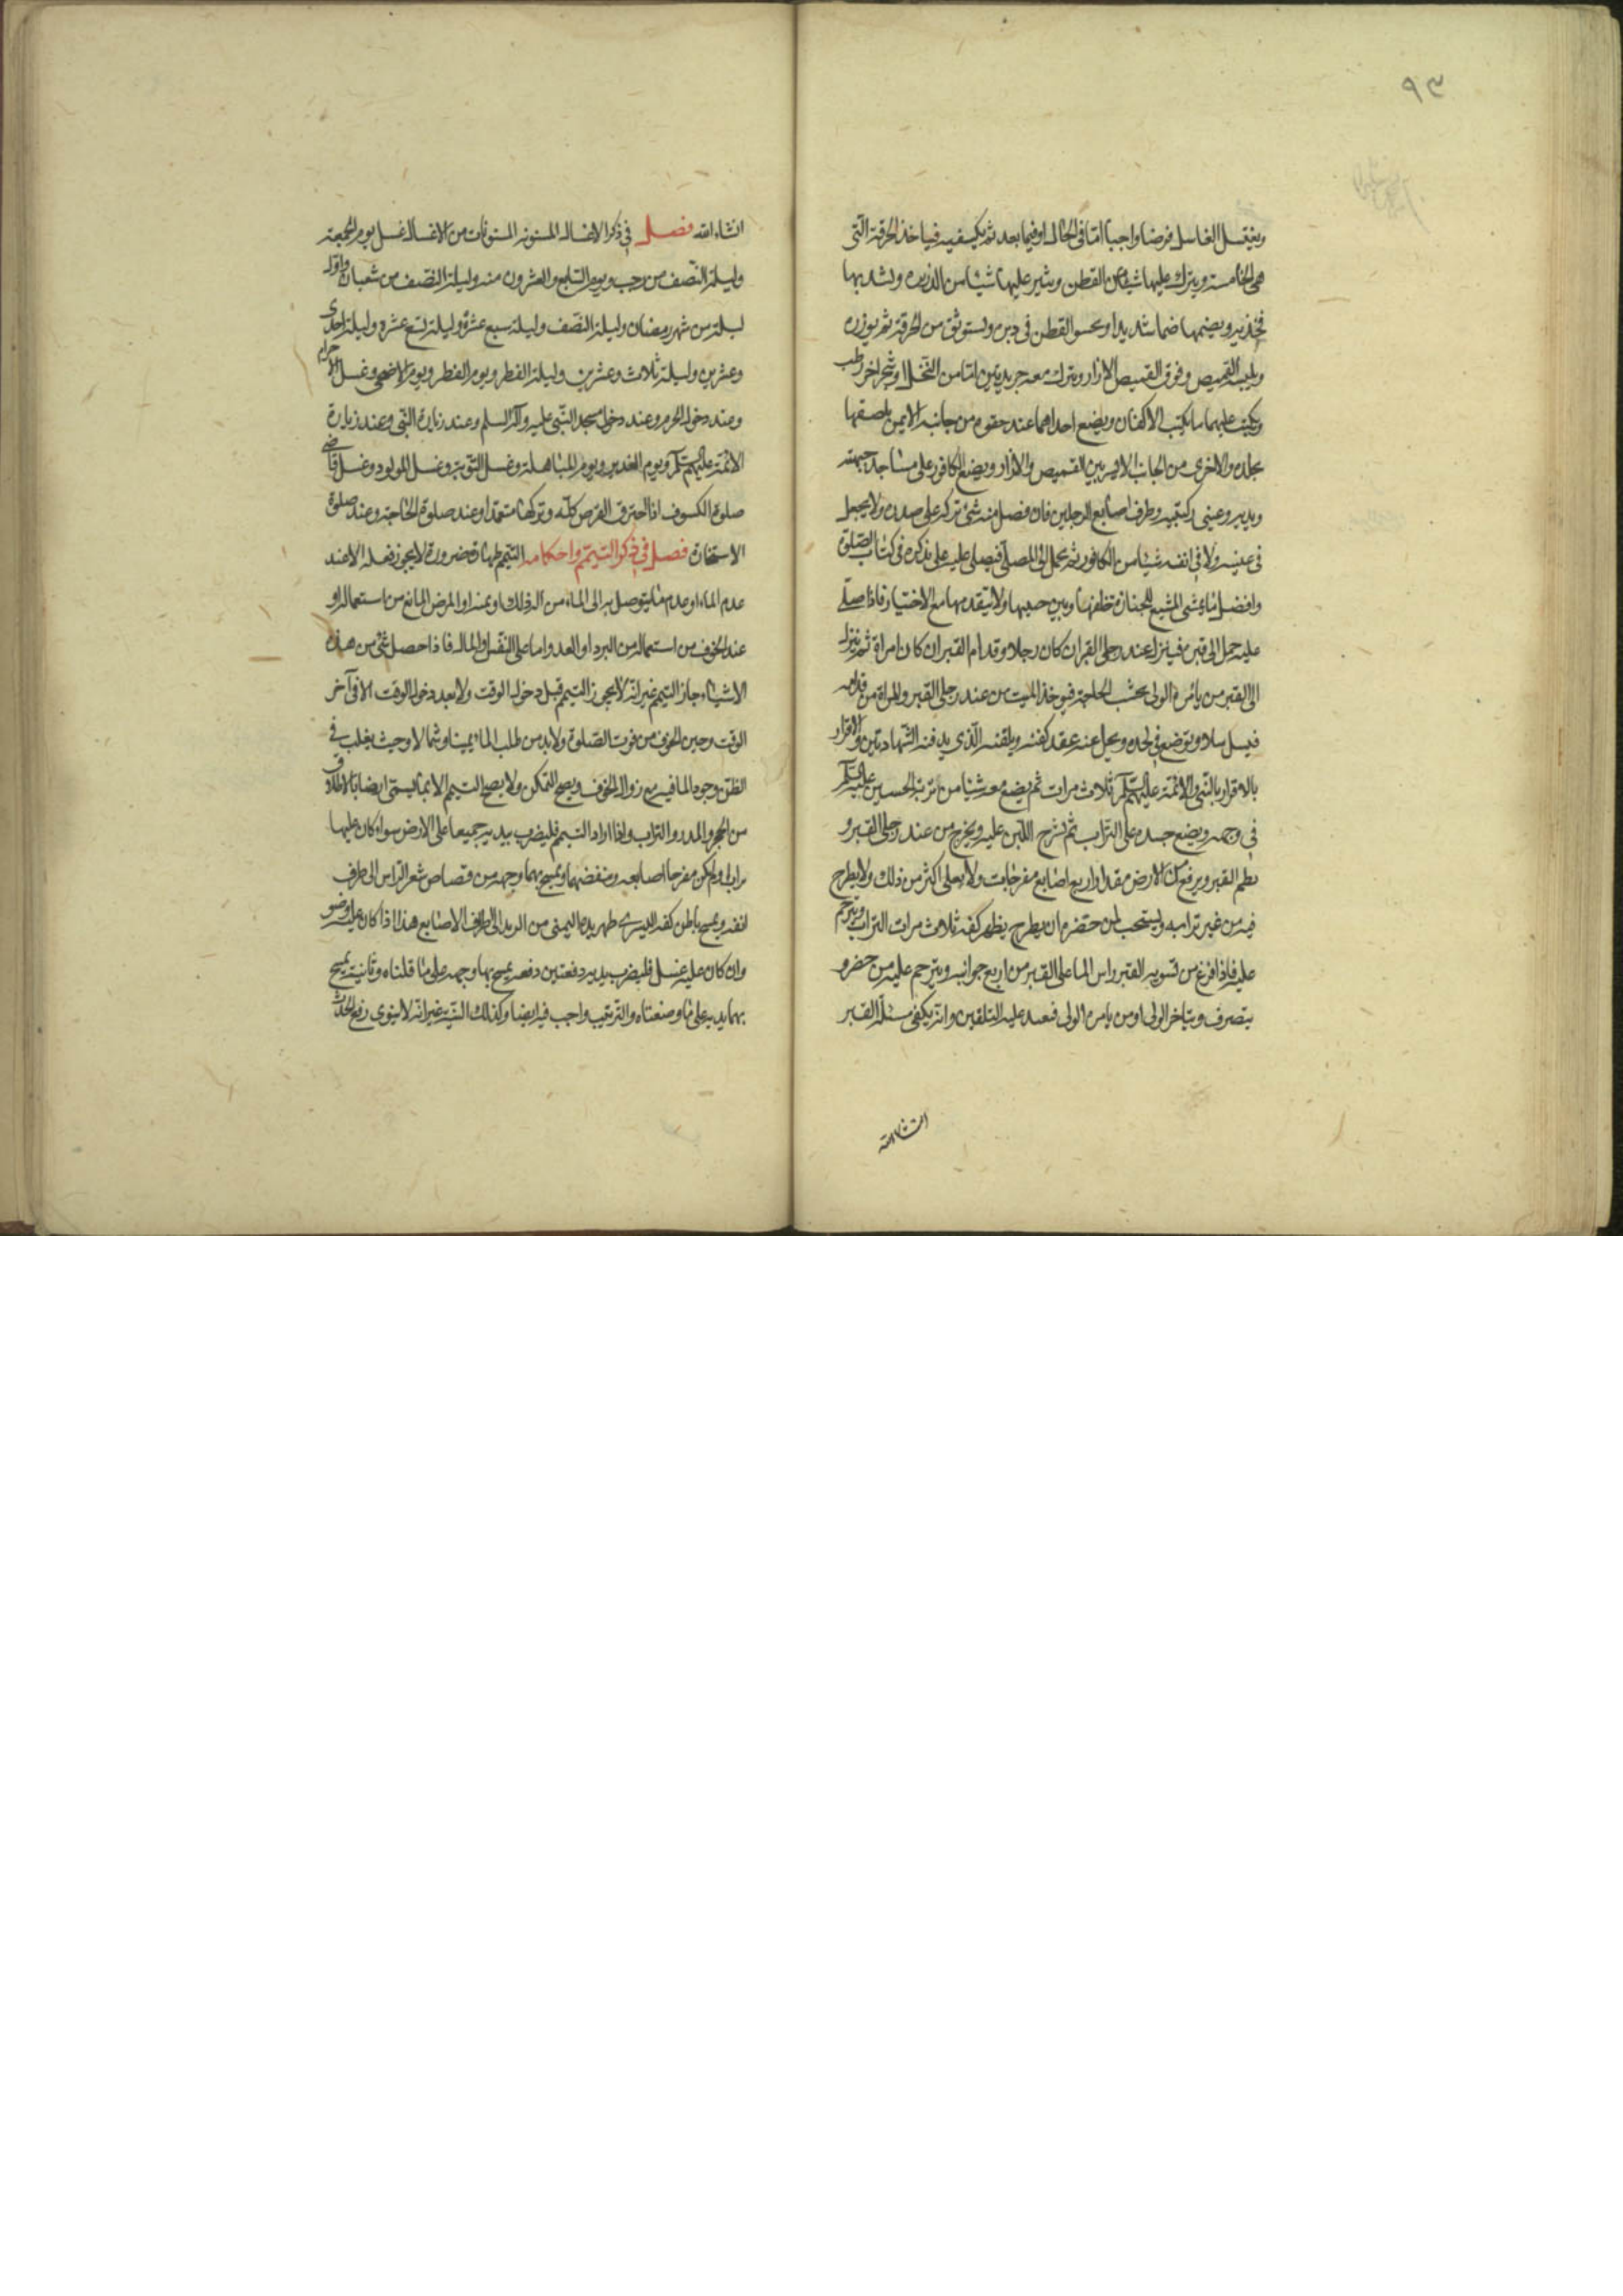 ٩٣
ويغتسل الغاسل فرضا واجبا اما في الحال او فيما بعد ثم يكفنه فياخذ الخرقة التي
هي الخامسة ويترك عليها شيئا من القطن وينثر عليها شيئا من الذريرة ويشد بها
فخذيه ويضمها ضما شديدا ويحسو القطن في دبره ويستوثق من الخرقة ثم يوزره
ويلبسه القميص وفوق القميص الازار ويترك معه جريدتين اما من النخل او شجر اخر رطب
ويكتب عليهما ما يكتب الاكفنان ويضع احداهما عند حقوه من جانبه الايمن يلصقها
بجلده والاخرى من الجانب الايسر بين القميص والازار ويضع الكافور على مساجده جبهته
ويديه وعيني ركبتيه وطرف اصابع الرجلين فان فضل منه شئ تركه على صدره ولا يجعل
في عينيه ولا في انفه شيئا من الكافور ثم يحمل الى المصلى فيصلى عليه على نذكره في كتاب الصلوة
وافضل ما يمشى المشيع للجنازة خلفها وبين جنبيها ولا يتقدمها مع الاختيار فاذا صلى
عليه حمل الى قبره فينزل عند رجلى القبر ان كان رجلا وقدام القبر ان كان امراة ثم ينزل
الى القبر من يامره الولى بحسب الحاجة فيوخذ الميت من عند رجلى القبر والمراة من قدامه
فيسل سلا ويوضع في لحده ويحل عنه عقد كفنه ويلقنه الذي يدفنه الشهادتين والاقرار
بالاقرار بالنبي والائمة عليهم السلم ثلاث مرات ثم يضع معه شيئا من تربة الحسين عليه السلم
في وجهه ويضع خده على التراب ثم يشرج اللبن عليه ويخرج من عند رجلى القبر و
يطم القبر ويرفع من الارض مقدار اربع اصابع مفرجات ولا يعلى اكثر من ذلك ولا يطرح
فيه من غير ترابه ويستحب لمن حضره ان يطرح بظهر كفه ثلاث مرات التراب ويترحم
عليه فاذا فرغ من تسوية القبر راس الما على القبر من اربع جوانبه ويترحم عليه من حضر و
يتصرف ويتاخر الولى او من يامره الولى فيعيد عليه التلقين وانه يكفى مسئلة القبر
انشاء الله
انشاء الله فصل في ذكر الاغسال المسنونه المسنونات من الاغسال غسل يوم الجمعة
وليلة النصف من رجب ويوم السابع والعشرون منه وليلة النصف من شعبان واول
ليلة من شهر رمضان وليلة النصف وليلة سبع عشرة وليلة تسع عشره وليلة احدى
وعشرين وليلة ثلاث وعشرين وليلة الفطر ويوم الفطر ويوم الاضحى وغسل الاحرام
وعند دخول الحرم وعند دخول مسجد النبي عليه وآله السلم وعند زيارة النبي وعند زيارة
الائمة عليهم السلم ويوم الغدير ويوم المباهلة وغسل التوبة وغسل المولود وغسل قاضى
صلوة الكسوف اذا احترق القرص كله وتركها متعمدا وعند صلوة الحاجة وعند صلوة
الاستخارة فصل في ذكر التيمم واحكامه التيمم طهارة ضرورة لا يجوز فعله الا عند
عدم الماء او عدم ما يتوصل به الى الماء من آلة ذلك او ثمنه او المرض المانع من استعماله او
عند الخوف من استعماله من البرد او العدو اما على النفس او المال فاذا حصل شئ من هذه
الاشياء جاز التيمم غير انه لا يجوز التيمم قبل دخول الوقت ولا بعد دخول الوقت الا في آخر
الوقت وحين الخوف من فوت الصلوة ولا بد من طلب الماء يمينا وشمالا وحيث يغلب في
الظن وجود الما فيه مع زوال الخوف ويصح التمكن ولا يصح التيمم الا بما يسمى ارضا بالاطلاق
من الحجر والمدر والتراب واذا اراد التيمم فليضرب بيديه جميعا على الارض سواء كان عليها
تراب او لم يكن مفرجا اصابعه وينفضهما ويمسح بهما وجهه من قصاص شعر الراس الى طرف
انفه ويمسح باطن كفه اليسرى ظهر يده اليمنى من الزند الى اطراف الاصابع هذا اذا كان عليه وضو
وان كان عليه غسل فليضرب بيديه دفعتين دفعه يمسح بها وجهه على ما قلناه وثانية يمسح
بهما يديه على ما وصفناه والترتيب واجب فيه ايضا وكذلك النية غير انه لا ينوى رفع الحدث